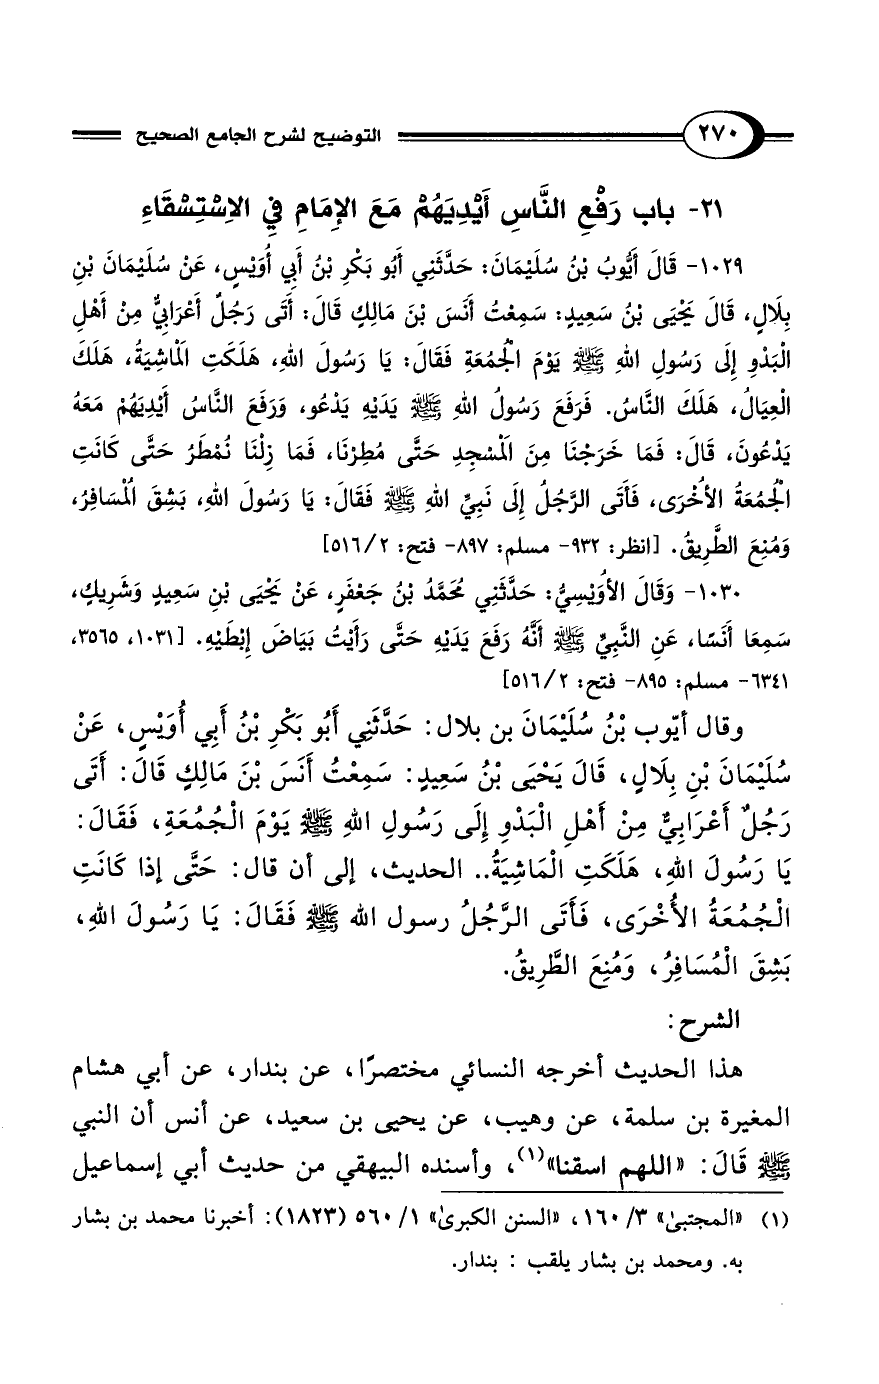 ٢٧٠ التوضيح لشرح الجامع الصحيح
٢١- باب رَفْعِ النَّاسِ أَيْدِيَهُمْ مَعَ الإِمَامِ فِي الاسْتِسْقَاءِ
١٠٢٩- قَالَ أَيُّوبُ بْنُ سُلَيْمَانَ: حَدَّثَنِي أَبُو بَكْرِ بْنُ أَبِي أُوَيْسٍ، عَنْ سُلَيْمَانَ بْنِ
بِلَالٍ، قَالَ يَحْيَى بْنُ سَعِيدٍ: سَمِعْتُ أَنَسَ بْنَ مَالِكٍ قَالَ: أَتَى رَجُلٌ أَعْرَابِيٌّ مِنْ أَهْلِ
البَدْوِ إِلَى رَسُولِ اللهِ ﷺ يَوْمَ الْجُمُعَةِ فَقَالَ: يَا رَسُولَ اللهِ، هَلَكَتِ الْمَاشِيَةُ، هَلَكَ
العِيَالُ، هَلَكَ النَّاسُ. فَرَفَعَ رَسُولُ اللهِ ﷺ يَدَيْهِ يَدْعُو، وَرَفَعَ النَّاسُ أَيْدِيَهُمْ مَعَهُ
يَدْعُونَ، قَالَ: فَمَا خَرَجْنَا مِنَ الْمَسْجِدِ حَتَّى مُطِرْنَا، فَمَا زِلْنَا نُمْطَرُ حَتَّى كَانَتِ
الْجُمُعَةُ الأُخْرَى، فَأَتَى الرَّجُلُ إِلَى نَبِيِّ اللهِ ﷺ فَقَالَ: يَا رَسُولَ اللهِ، بَشِقَ الْمُسَافِرُ،
وَمُنِعَ الطَّرِيقُ. [انظر: ٩٣٢- مسلم: ٨٩٧- فتح: ٥١٦/٢]
١٠٣٠- وَقَالَ الأُوَيْسِيُّ: حَدَّثَنِي مُحَمَّدُ بْنُ جَعْفَرٍ، عَنْ يَحْيَى بْنِ سَعِيدٍ وَشَرِيكٍ،
سَمِعَا أَنَسًا، عَنِ النَّبِيِّ ﷺ أَنَّهُ رَفَعَ يَدَيْهِ حَتَّى رَأَيْتُ بَيَاضَ إِبْطَيْهِ. [١٠٣١، ٣٥٦٥،
٦٣٤١- مسلم: ٨٩٥- فتح: ٥١٦/٢]
وقال أيّوب بْنُ سُلَيْمَانَ بن بلال: حَدَّثَنِي أَبُو بَكْرِ بْنُ أَبِي أُوَيْسٍ، عَنْ
سُلَيْمَانَ بْنِ بِلَالٍ، قَالَ يَحْيَى بْنُ سَعِيدٍ: سَمِعْتُ أَنَسَ بْنَ مَالِكٍ قَالَ: أَتَى
رَجُلٌ أَعْرَابِيٌّ مِنْ أَهْلِ الْبَدْوِ إِلَى رَسُولِ اللهِ ﷺ يَوْمَ الْجُمُعَةِ، فَقَالَ:
يَا رَسُولَ اللهِ، هَلَكَتِ الْمَاشِيَةُ.. الحديث، إلى أن قال: حَتَّى إذا كَانَتِ
الْجُمُعَةُ الأُخْرَى، فَأَتَى الرَّجُلُ رسول الله ﷺ فَقَالَ: يَا رَسُولَ اللهِ،
بَشِقَ الْمُسَافِرُ، وَمُنِعَ الطَّرِيقُ.
الشرح:
هذا الحديث أخرجه النسائي مختصرًا، عن بندار، عن أبي هشام
المغيرة بن سلمة، عن وهيب، عن يحيى بن سعيد، عن أنس أن النبي
ﷺ قَالَ: «اللهم اسقنا»(١)، وأسنده البيهقي من حديث أبي إسماعيل
(١) «المجتبىٰ» ٣/ ١٦٠، «السنن الكبرىٰ» ١/ ٥٦٠ (١٨٢٣): أخبرنا محمد بن بشار
به. ومحمد بن بشار يلقب : بندار.